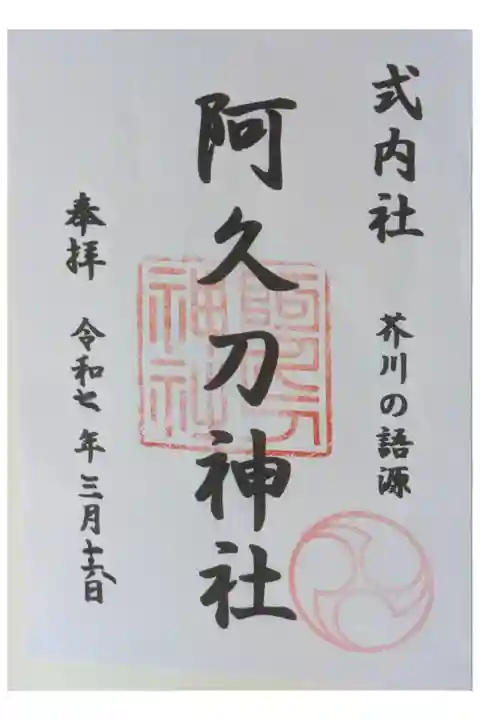 式内社
芥川の語源
阿久刀神社
阿久刀神社
奉拝
令和七年三月十六日